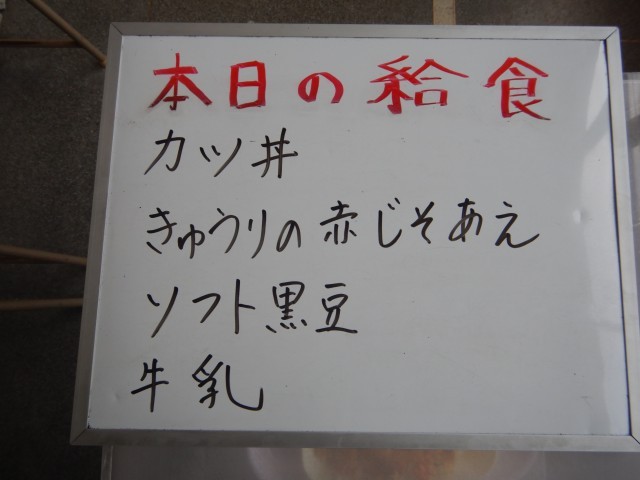 本日の給食
カツ丼
きゅうりの赤じそあえ
ソフト黒豆
牛乳